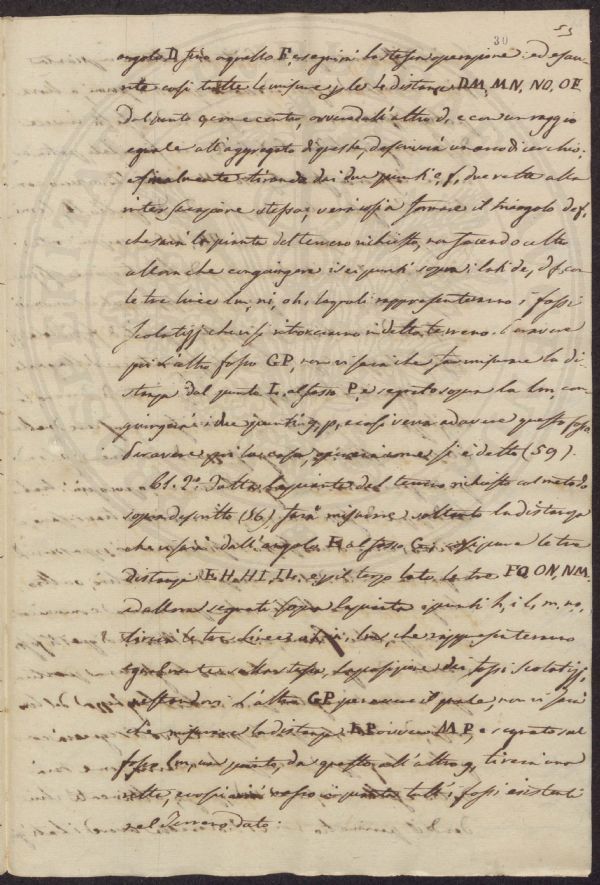 30
53
angolo D fino a quello F, eseguirà la stessa operazione: ed esau
rite così tutte le misure per le distanze DM, MN, NO, OF
dal punto come centro, ovvero dall'altro d, e con un raggio
eguale all'aggregato di queste, descriverà un arco di cerchio;
e finalmente tirando dai due punti e, f, due rette alla
intersecazione stessa, verrassi a formare il triangolo def,
che sarà la pianta del terreno richiesto, non facendo altro
allora che congiungere i sei punti sopra i lati de, df con
le tre linee lm, ni, oh, le quali rappresenteranno i fossi
scolatizj che vi si ritrovano in detto terreno. Per avere
poi l'altro fosso GP, non vi sarà che far misurare la di
stanza dal punto L al fosso P, e segnato sopra la lm, con
giungerà i due punti g, p, e così verrà ad avere questo fosso
per la cosa, si è detto (59).
61. 2.o Fatta la pianta del terreno richiesto col metodo
sopradescritto (56) farà misurare soltanto la distanza
che vi sarà dall'angolo E al fosso G, e così pure le tre
distanze EH, HI, IL, e per il terzo lato, le tre FO, ON, NM.
ed allora segnati sopra la pianta i punti h, i, l, m, n, o,
tirerà le tre linee lm, che rappresenteranno
egualmente sulla stessa, la posizione dei fossi scolatizj,
l'altro GP per avere il quale, non vi sarà
che misurare la distanza LP ovvero MP, e segnato sul
fosso lm, un punto, da questo all'altro g, tirerà una
retta, e così in pianta tutti i fossi esistenti
nel Terreno dato: